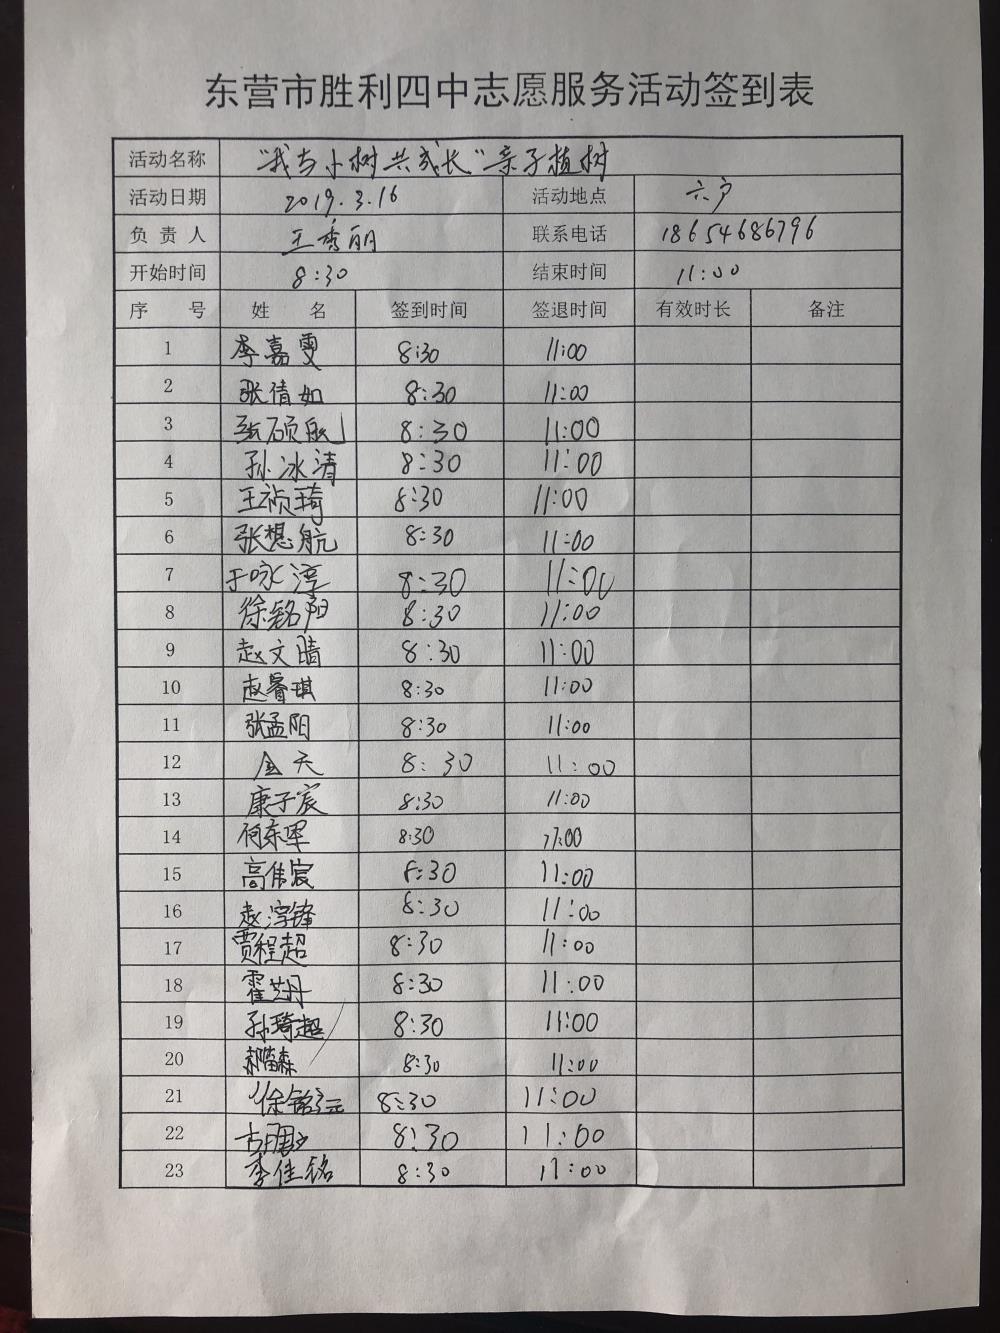 东营市胜利四中志愿服务活动签到表
活动名称 "我与小树共成长"亲子植树
活动日期 2019.3.16 活动地点 六户
负责人 王秀丽 联系电话 18654686796
开始时间 8:30 结束时间 11:00
序号 姓名 签到时间 签退时间 有效时长 备注
1 李嘉雯 8:30 11:00
2 张倩如 8:30 11:00
3 张硕航 8:30 11:00
4 孙冰清 8:30 11:00
5 王祯琦 8:30 11:00
6 张想航 8:30 11:00
7 于咏淳 8:30 11:00
8 徐铭阳 8:30 11:00
9 赵文晴 8:30 11:00
10 赵睿琪 8:30 11:00
11 张孟阳 8:30 11:00
12 金天 8:30 11:00
13 康子宸 8:30 11:00
14 何东军 8:30 11:00
15 高伟宸 8:30 11:00
16 赵淳锋 8:30 11:00
17 贾程超 8:30 11:00
18 霍艺丹 8:30 11:00
19 孙琦超 8:30 11:00
20 郝苗森 8:30 11:00
21 徐铭元 8:30 11:00
22 8:30 11:00
23 李佳铭 8:30 11:00